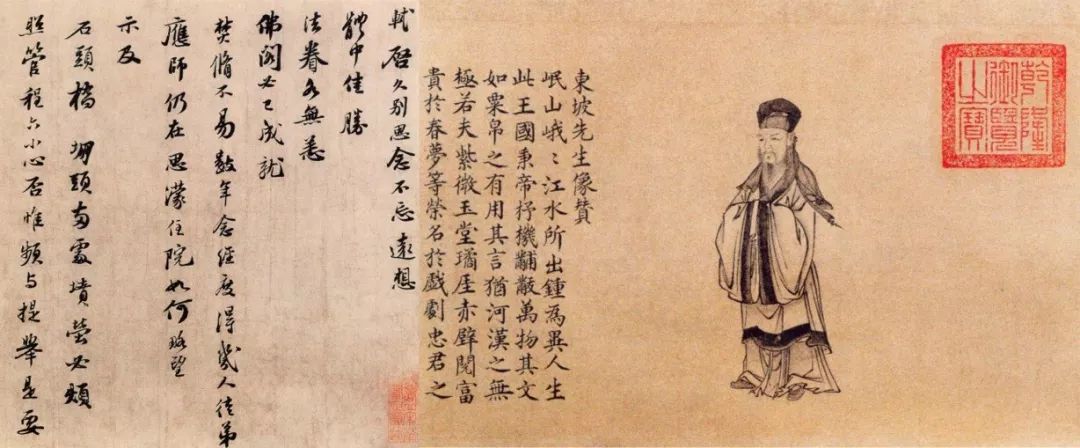 乾隆
御覽
之寶
東坡先生像贊
岷山峨〻江水所出鍾為異人生
此王國秉帝杼機黼黻萬物其文
如粟帛之有用其言猶河漢之無
極若夫紫微玉堂璚厓赤壁閱富
貴於春夢等榮名於戲劇忠君之
軾啓久別思念不忘遠想
體中佳勝
法眷各無恙
佛閣必已成就
焚脩不易數年念經度得幾人徒弟
應師仍在思濛住院如何略望
示及
石頭橋堋頭兩處墳塋必煩
照管程六小心否惟頻与提舉是要